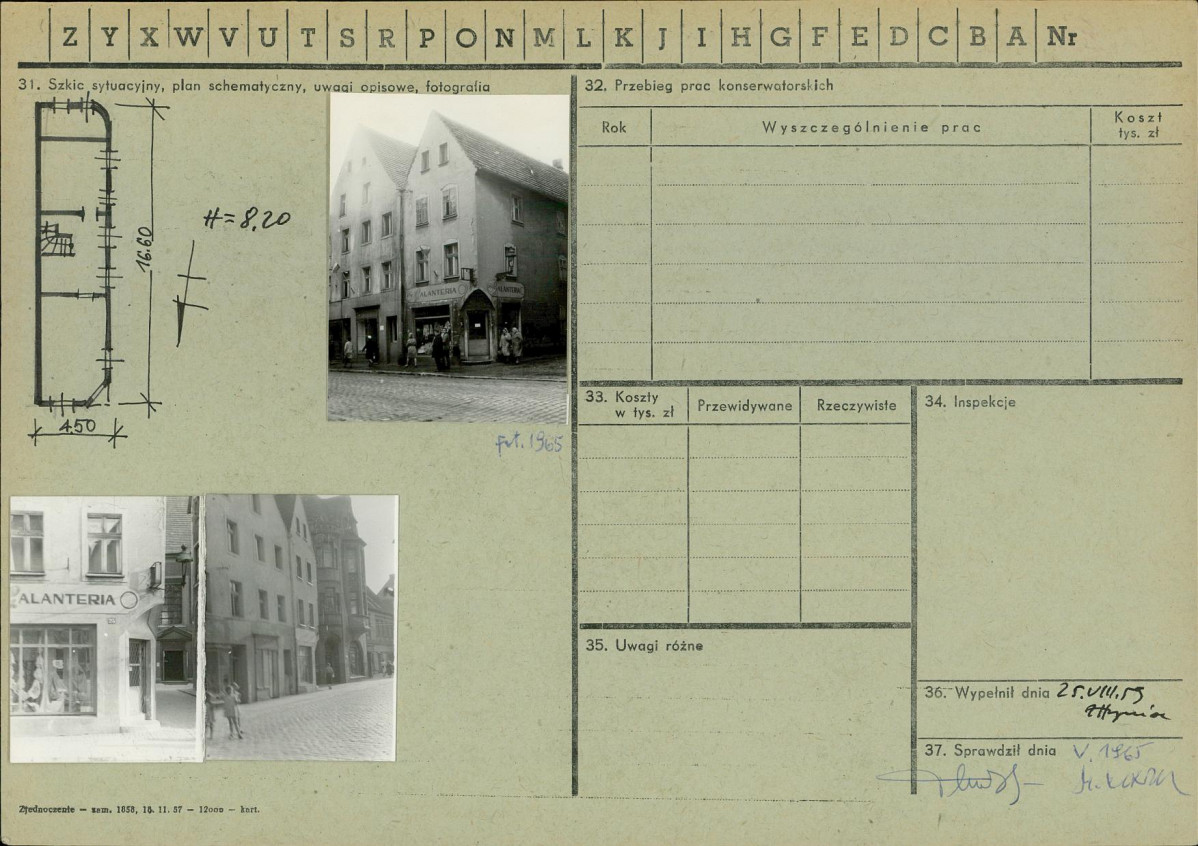 Z Y X W V U T S R P O N M L K J I H G F E D C B A Nr
31. Szkic sytuacyjny, plan schematyczny, uwagi opisowe, fotografia
16.60
H=8,20
450
ALANTERIA
ALANTERIA
fot. 1965
ALANTERIA
Zjednoczenie — zam. 1858, 16. 11. 57 — 12000 — kart.
32. Przebieg prac konserwatorskich
Rok
Wyszczególnienie prac
Koszt
tys. zł
33. Koszty
w tys. zł
Przewidywane
Rzeczywiste
34. Inspekcje
35. Uwagi różne
36. Wypełnił dnia 25.VIII.59
37. Sprawdził dnia V. 1965